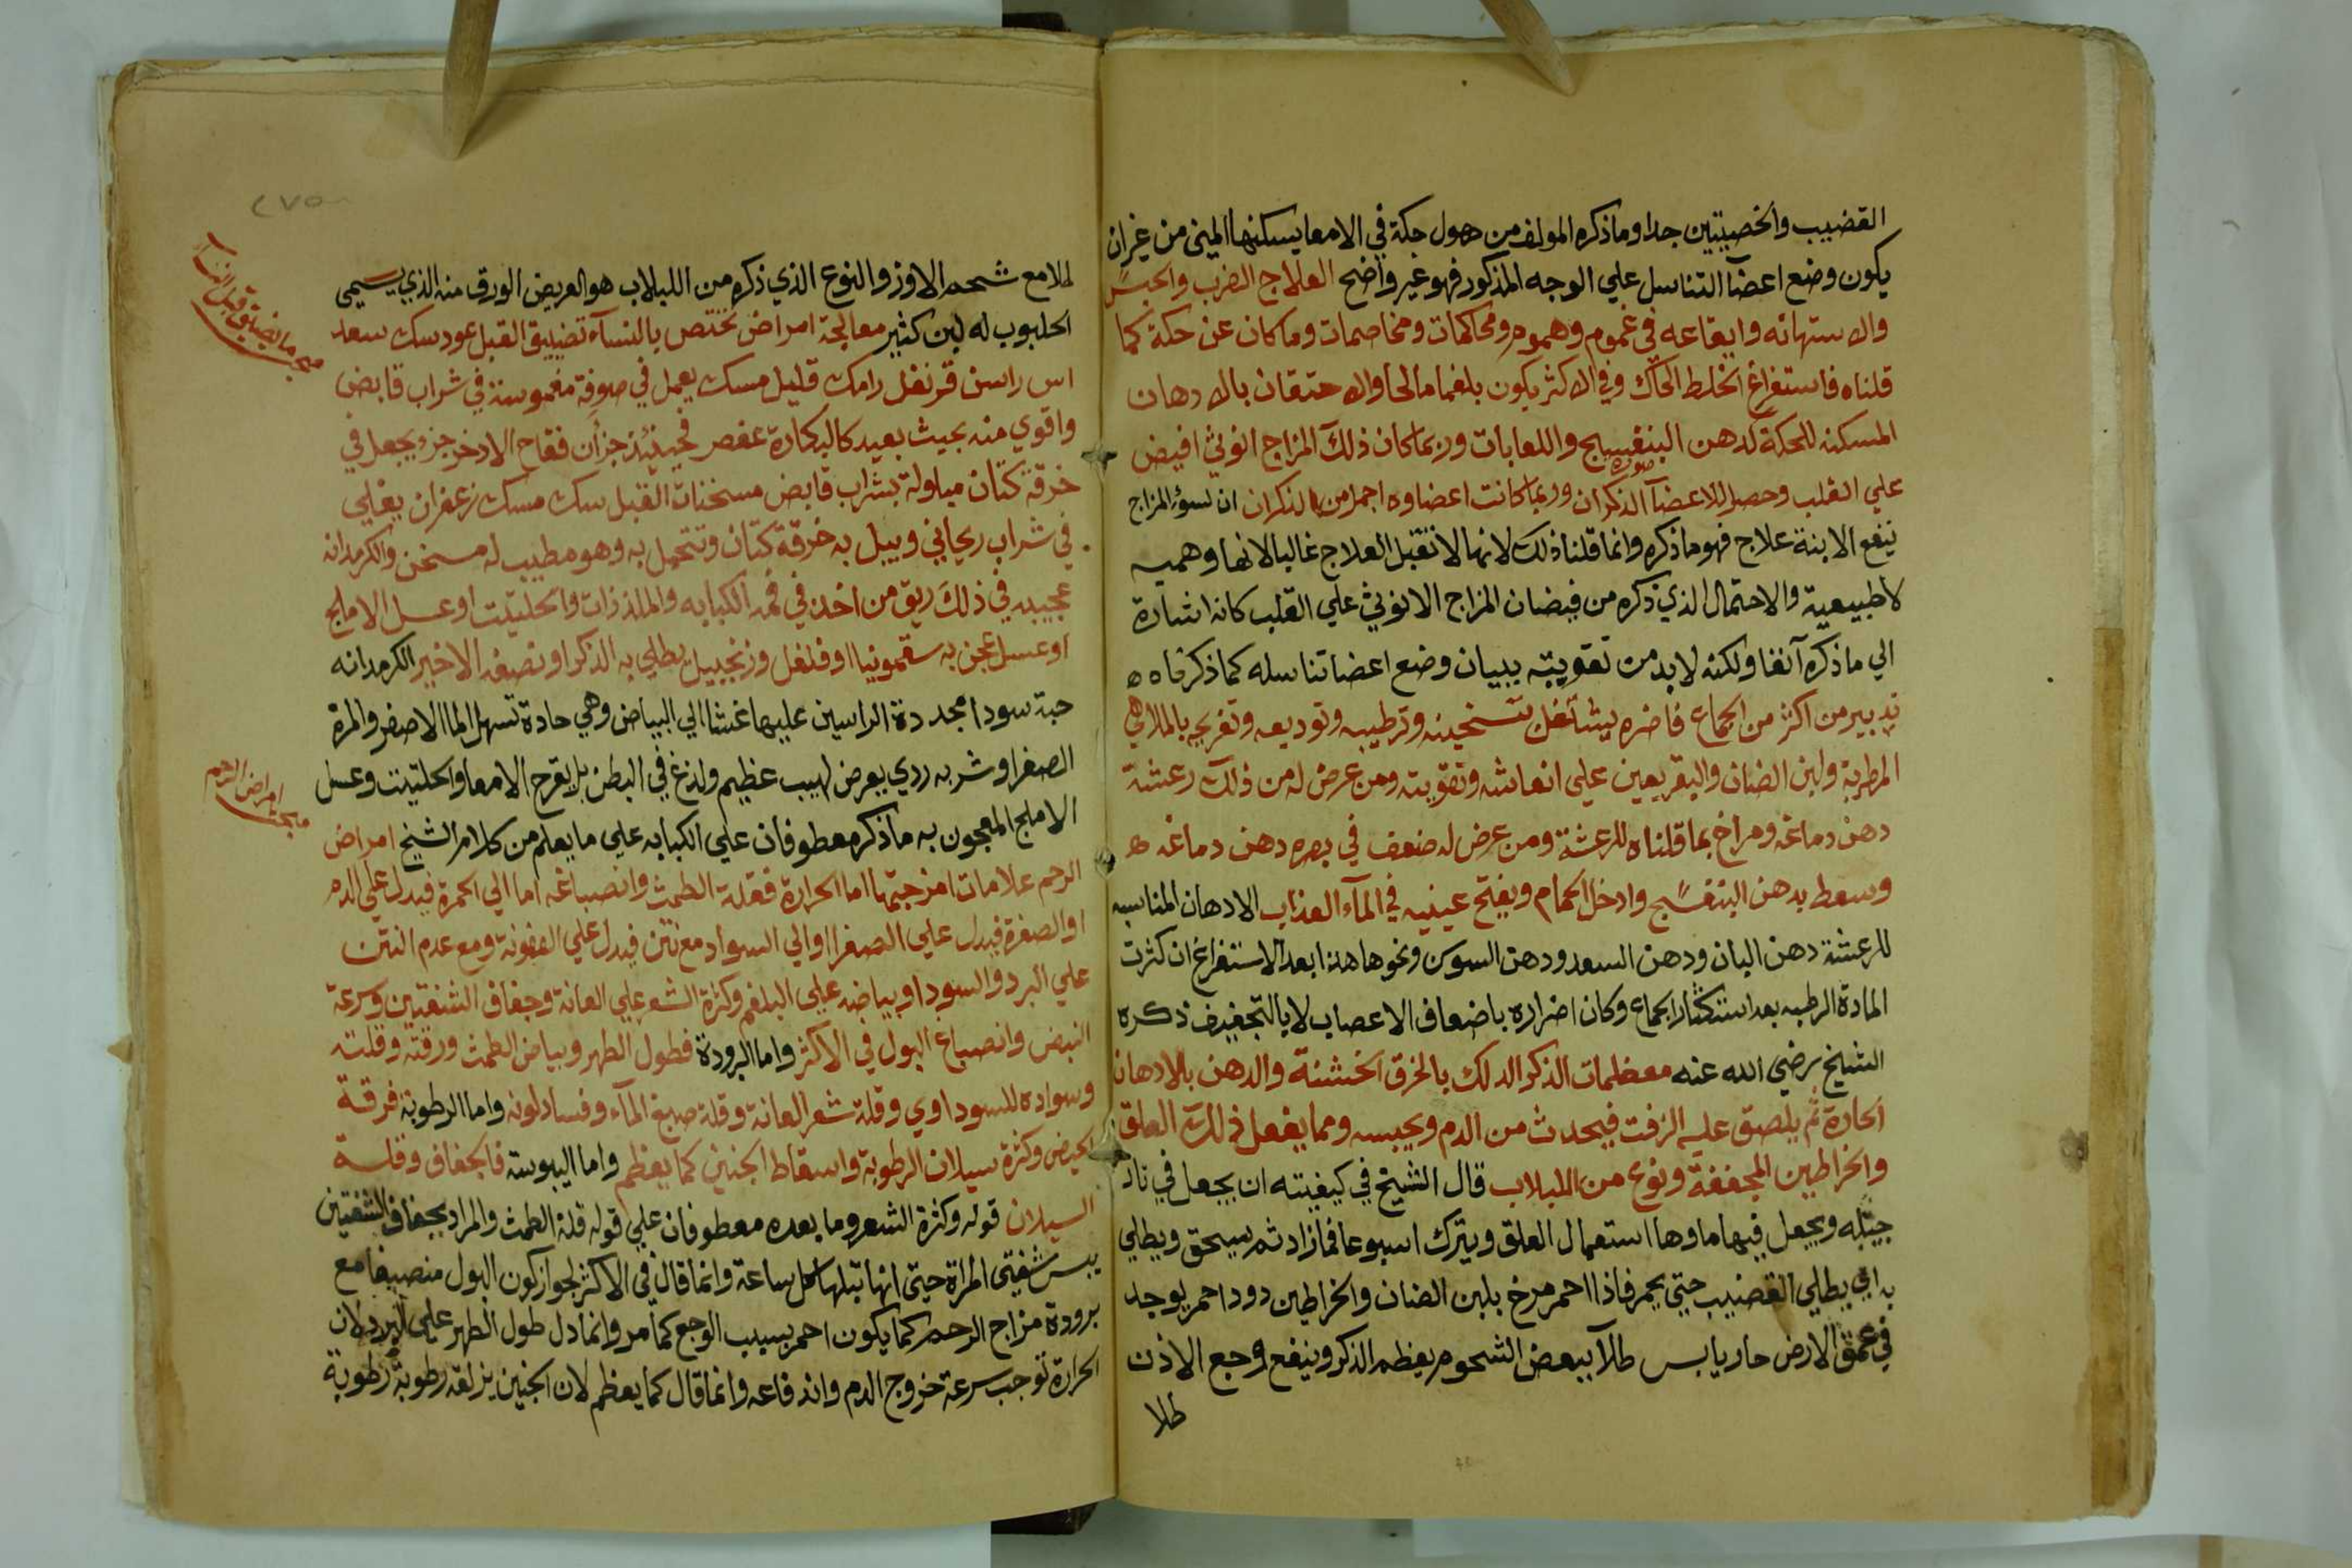 القضيب والخصيتين جدا وما ذكره المولف من حصول حكة في الامعا يسكنها المني من غيران
يكون وضع اعضآ التناسل علي الوجه المذكور فهو غير واضح العلاج الضرب والحبس
والاستهانه وايقاعه في غموم وهموم ومحاكمات ومخاصمات وما كان عن حكة كما
قلناه فاستفراغ الخلط الحاك وفي الاكثر يكون بلغما مالحا والاحتقان بالادهان
المسكنه للحكة كدهن البنفسج واللعابات وربما كان ذلك المزاج انوثي افيض
علي القلب وحصل للاعضآ صورة الذكران وربما كانت اعضاوه اجمل من الذكران ان لسوء المزاج
ينفع الابنة علاج فهو ما ذكره وانما قلنا ذلك لانها لا تقبل العلاج غالبا لانها وهميه
لا طبيعية والاحتمال الذي ذكره من فيضان المزاج الانوثي علي القلب كانه اشارة
الي ما ذكره آنفا ولكنه لابد من تقويته ببيان وضع اعضا تناسله كما ذكرناه ه
تدبير من اكثر من الجماع فاضره يشتغل بتسخينه وترطيبه وتوديعه وتفريحه بالملاهي
المطربة ولبن الضان والبقر يعين علي انعاشه وتقويته ومن عرض له من ذلك رعشة
دهن دماغه ومراخ بما قلناه للرعشة ومن عرض له ضعف في بصره دهن دماغه ه
وسعط بدهن البنفسج وادخل الحمام ويفتح عينيه في المآء العذاب الادهان المناسبه
للرعشة دهن البان ودهن السعد ودهن السوسن ونحوها هذا بعد الاستفراغ ان كثرت
المادة الرطبه بعد استكثار الجماع وكان اضراره باضعاف الاعصاب لا بالتجفيف ذكره
الشيخ رضي الله عنه معظمات الذكر الدلك بالخرق الخشنة والدهن بالادهان
الحارة ثم يلصق عليه الزفت فيحدث من الدم ويحبسه ومما يفعل ذلك العلق
والخراطين المجففة ونوع من اللبلاب قال الشيخ في كيفيته ان يجعل في نار
جيتله ويجعل فيها ماوها استعمال العلق ويترك اسبوعا فما زاد ثم يسحق ويطلي
به اي يطلي القضيب حتي يحمر فاذا احمر مرخ بلبن الضان والخراطين دود احمر يوجد
في عمق الارض حار يابس طلآ ببعض الشحوم يعظم الذكر وينفع وجع الاذن
طلا
٢٧٥
طلا مع شحم الاوز والنوع الذي ذكره من اللبلاب هو العريض الورق منه الذي يسمي
الحلبوب له لبن كثير معالجة امراض تختص بالنسآء تضييق القبل عود سك سعد
اس راسن قرنفل رامك قليل مسك يعمل في صوفة مغموسة في شراب قابض
واقوي منه بحيث يعيد كالبكارة عفص فجنيئذ جزان فقاح الاذخر جز ويجعل في
خرقة كتان مبلولة بشراب قابض مسخنات القبل سك مسك زعفران يغلي
في شراب ريحاني ويبل به خرقة كتان وتتحمل به وهو مطيب له مسخن والكرمدانه
عجيبه في ذلك ريق من اخذ في فمه الكبابه والملذذات والحليتت او عسل الاملج
او عسل عجن به سقمونيا او فلفل وزنجبيل يطلي به الذكر او نصفه الاخير الكرمدانه
حبة سودا محددة الراسين عليها غشا الي البياض وهي حادة تسهل الما الاصفر والمرة
الصفرا وشربه ردي يعرض لهيب عظيم ولذع في البطن بل يقرح الامعا والحلتيت وعسل
الاملج المعجون به ما ذكره معطوفان علي الكبابه علي ما يعلم من كلام الشيخ امراض
الرحم علامات امزجتها اما الحرارة فقلة الطمث وانصباغه اما الي الحمرة فيدل علي الدم
او الصفرة فيدل علي الصفرا او الي السواد مع نتن فيدل علي العفونة ومع عدم النتن
علي البرد والسودا وبياضه علي البلغم وكثرة الشعر علي العانة وجفاف الشفتين وسرعة
النبض وانصباغ البول في الاكثر واما البرودة فطول الطهر وبياض الطمث ورقته وقلته
وسواده للسوداوي وقلة شعر العانة وقلة صبغ المآء وفساد لونه واما الرطوبة فرقة
الحيض وكثرة سيلان الرطوبة واسقاط الجنين كما يعظم واما اليبوسة فالجفاف وقلة
السيلان قوله وكثرة الشعر وما بعده معطوفان علي قوله قلة الطمث والمراد بجفاف الشفتين
يبس شفتي المراة حتي انها تبلها كل ساعة وانما قال في الاكثر لجواز كون البول منصبغا مع
برودة مزاج الرحم كما يكون احمر بسبب الوجع كما مر وانما دل طول الطهر علي البرد لان
الحرارة توجب سرعة خروج الدم واندفاعه وانما قال كما يعظم لان الجنين يزلقه رطوبة رطوبة
امراض الرحم